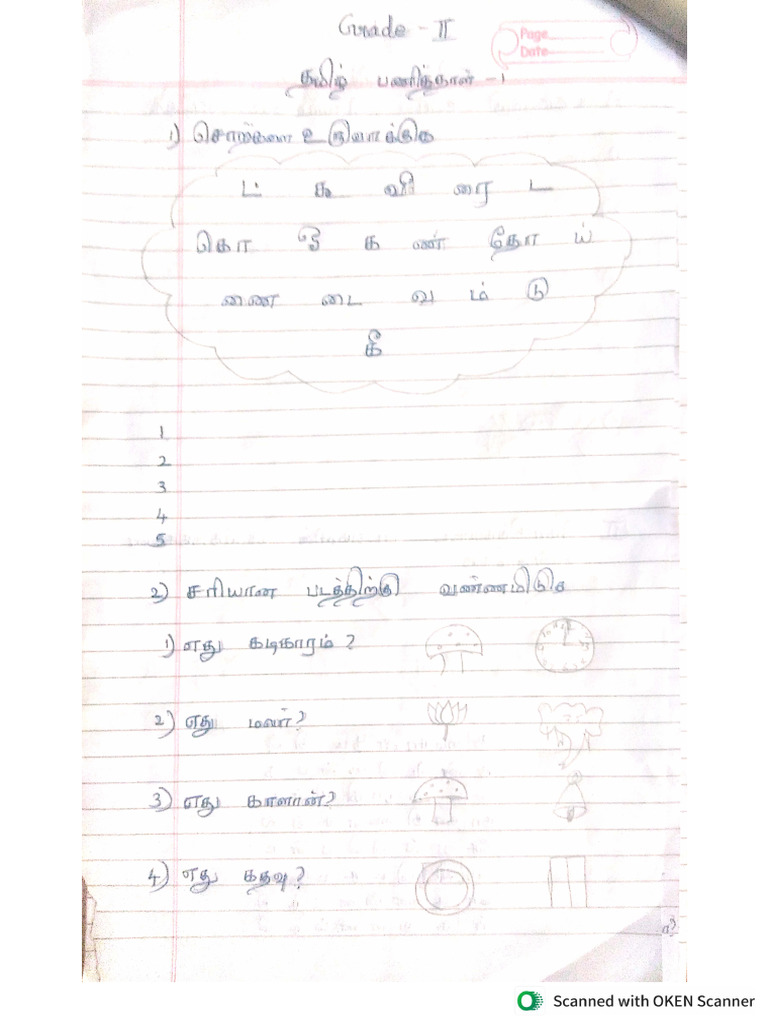 Grade - II
Page
Date
தமிழ் பணித்தாள் - 1
1) சொற்களை உருவாக்குக
ட் கூ வீ ரை ட
கொ ஓ க ண் தோ ய்
ணை டை வ ம் டு
கீ
1
2
3
4
5
2) சரியான படத்திற்கு வண்ணமிடுக
1) எது கடிகாரம் ?
2) எது மலர்?
3) எது காளான்?
4) எது கதவு?
Scanned with OKEN Scanner